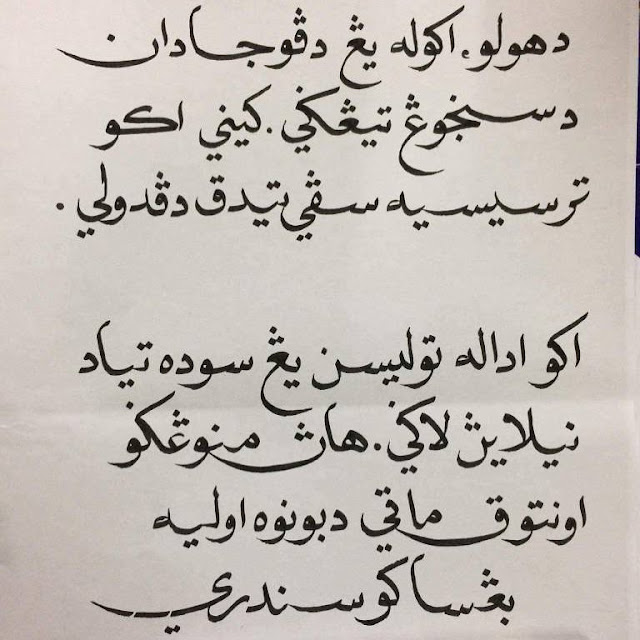 دهولو، اكوله يڠ دڤوجادان
دسنجوڠ تيڠݢي. كيني اكو
ترسيسيه سڤي تيدق دڤدولي.
اكو اداله توليسن يڠ سوده تياد
نيلاين لاݢي. هاڽ منوڠݢو
اونتوق ماتي دبونوه اوليه
بڠساكو سنديري